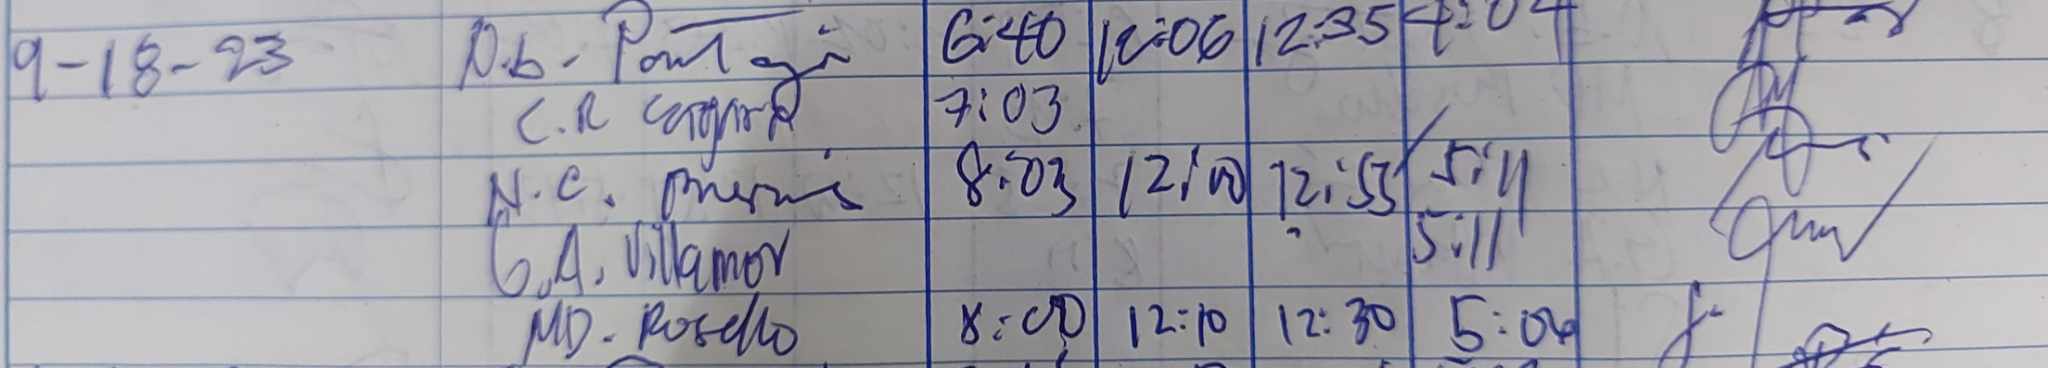 9-18-23 N.b. 6:40 12:06 12:35 4:04
C.R 7:03
N.C. 8:03 12:00 12:53 5:11
G.A. Villamor 5:11
MD. Rosello 8:00 12:10 12:30 5:04